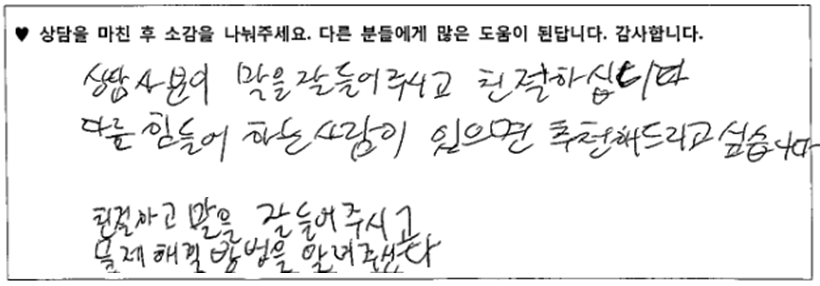 ♥ 상담을 마친 후 소감을 나눠주세요. 다른 분들에게 많은 도움이 된답니다. 감사합니다.
상담사분이 말을 잘 들어주시고 친절하십니다
다른 힘들어 하는 사람이 있으면 추천해드리고 싶습니다
친절하고 말을 잘 들어주시고
문제해결방법을 알려줬다